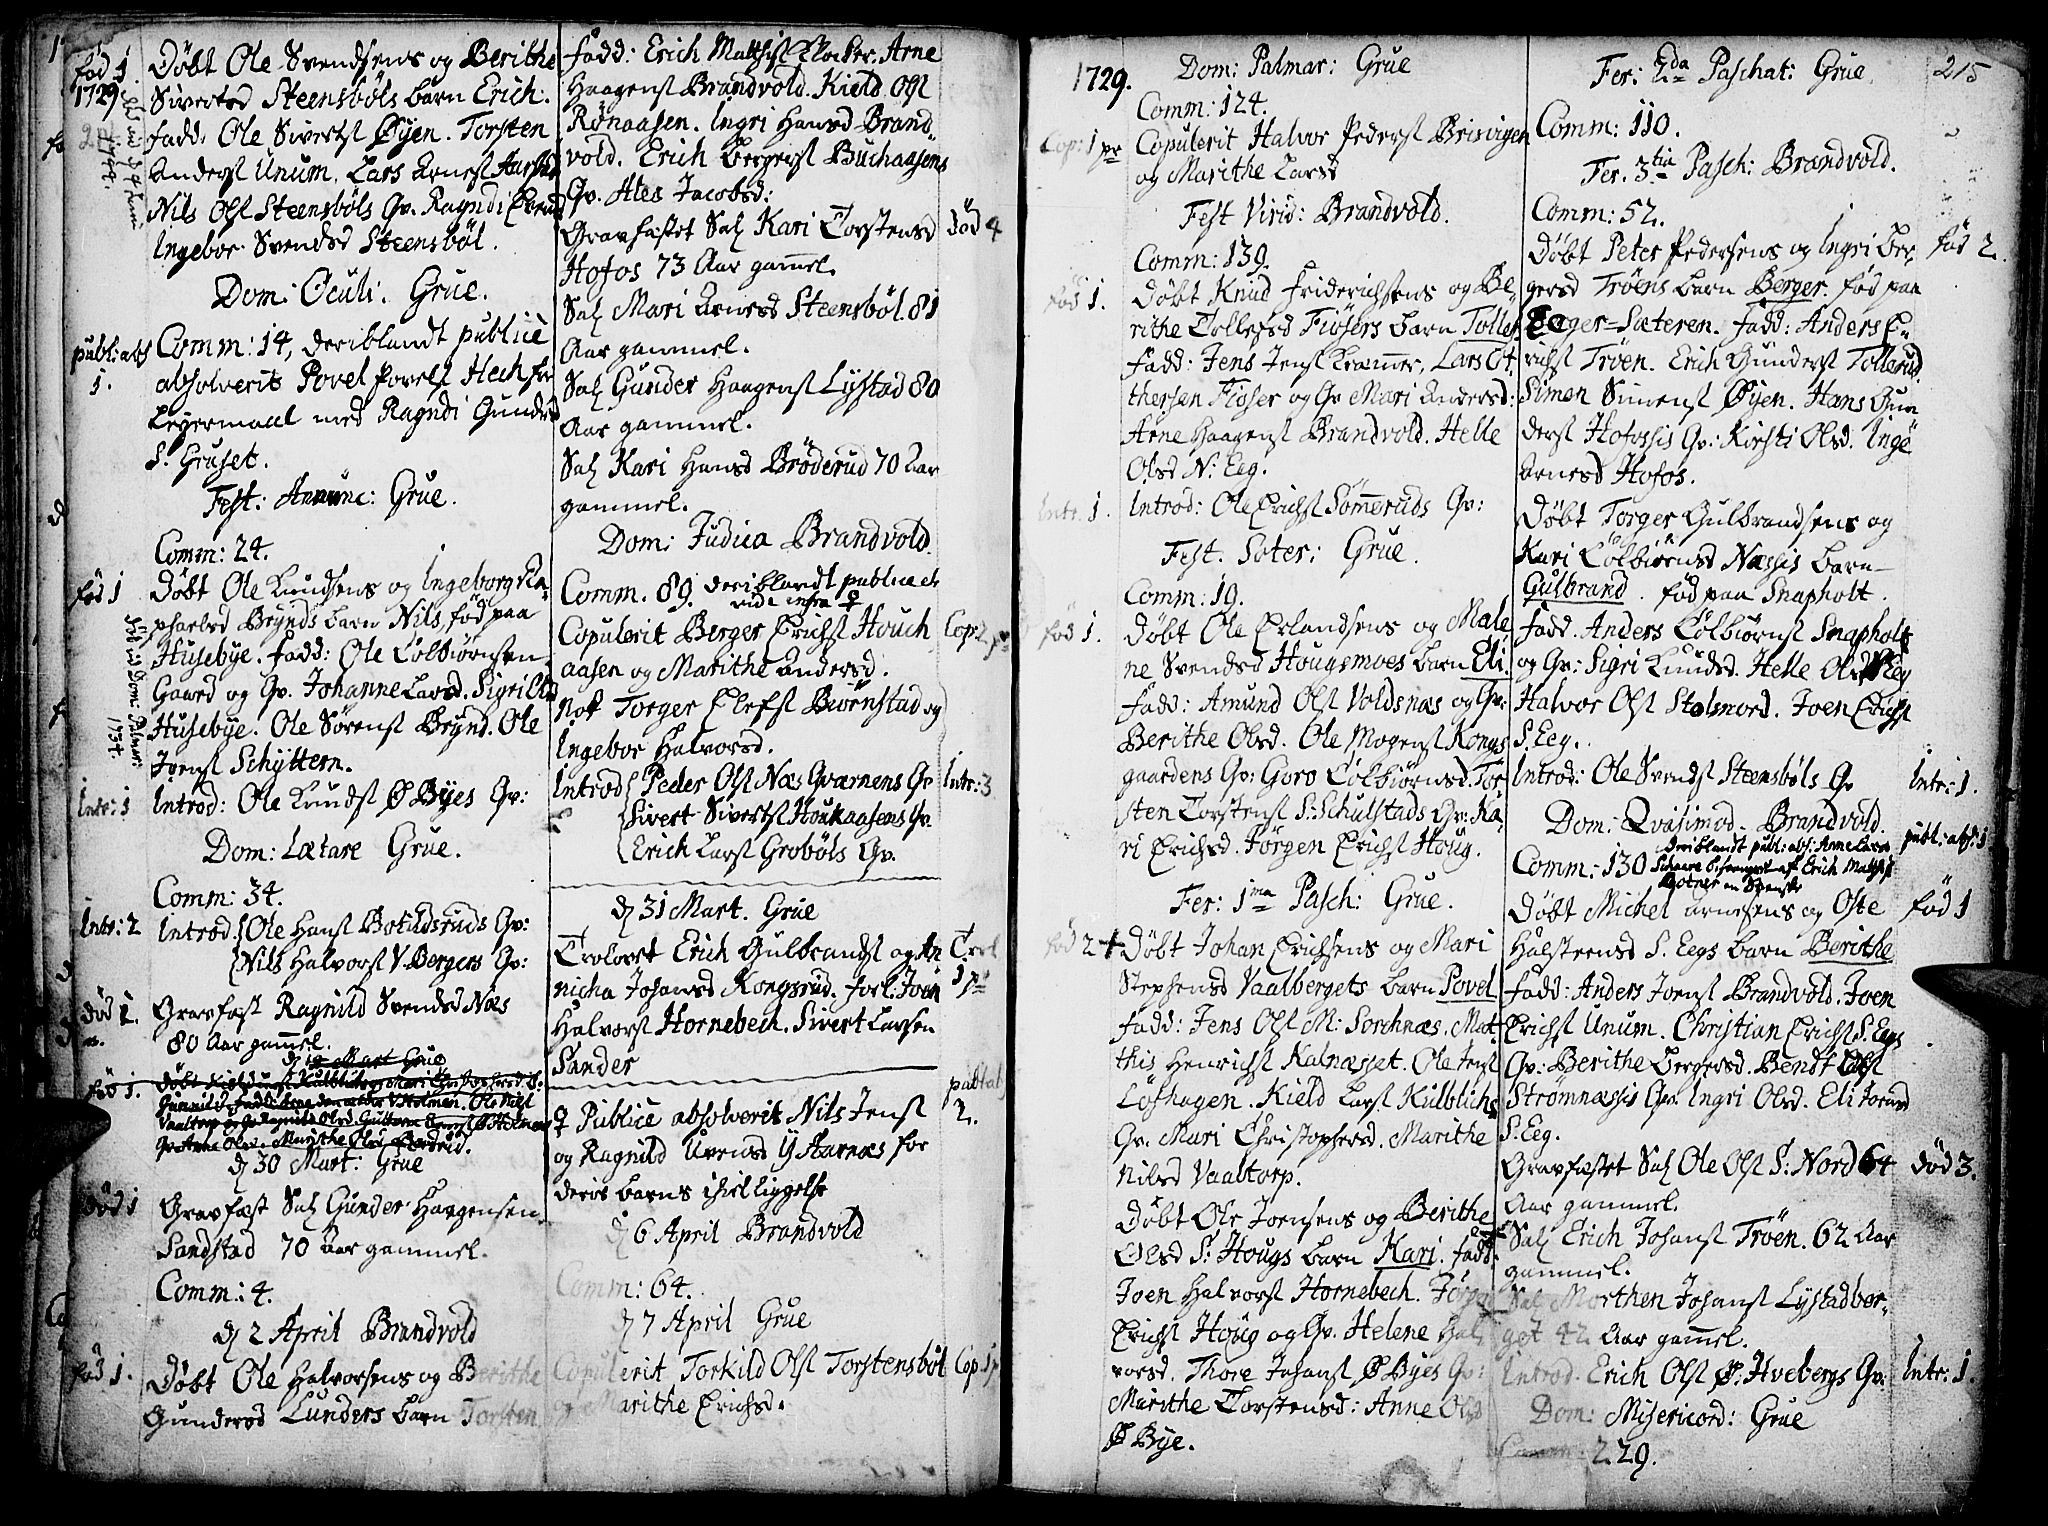 fød 1.
1729
Døbt Ole Svendsens og Berithe
Sivertsd Steensbøls barn Erich.
fadd: Ole Sivertst Øyen. Torsten
Anderst Unum. Lars Arnest
Nils Olst Steensbøls Qv. Ragndi
Ingebor Svendsd Steensbøl.
Dom: Oculi. Grue.
publ: abs
1.
Comm: 14, deriblandt publice
absolverit Povel Povelst Hech for
Leyermaal med Ragndi Gundersd
S. Gruset.
Fest: Annunc: Grue.
Comm: 24.
fød 1
Døbt Ole Knudsens og Ingeborg Ra
phaelsd Brynds barn Nils, fød paa
Husebye. fadd: Ole Colbiørnsen
Gaard og Qv. Johanne Larsd. Sigri
Husebye. Ole Sørenst Brynd. Ole
Joenst Schyttern.
død Dom: Palmar:
1734.
Intr: 1
Introd: Ole Knudst Ø Byes Qv:
Dom: Lætare Grue.
Comm: 34.
Intr: 2
Introd Ole Hanst Botildsruds Qv:
Nils Halvorst V. Bergers Qv:
død 1.
Gravfæst Ragnild Svendsd Næs
80 Aar gammel.
d. Mart Grue
fød 1.
d. 30 Mart: Grue
død 1
Gravfæst Sal Gunder Haagensen
Sandstad 70 Aar gammel.
Comm: 4.
d. 2 April Brandvold
fød 1.
Døbt Ole Halvorsens og Berithe
Gundersd Lunders barn Torsten
fadd: Erich Matthist Klocker. Arne
Haagenst Brandvold. Kield Olst
Rønaasen. Ingri Hansd Brand-
vold. Erich Bergerst Buchaasens
Qv. Ales Jacobsd:
Gravfæstet Sal Kari Torstensd
død 4
Hofos 73 Aar gammel.
Sal Mari Arnesd Steensbøl 81
Aar gammel.
Sal Gunder Haagenst Lystad 80
Aar gammel.
Sal Kari Hansd Brøderud 70 Aar
gammel.
Dom: Judica Brandvold.
Comm. 89. deriblandt publica et
vide infra ♀
Copulerit Berger Erichst Houch
Cop: 2 pr
aasen og Marithe Andersd.
Not Torger Elefst Biørnstad og
Ingebor Halvorsd.
Introd Peder Olst Næs Qvarnens Qv
Intr: 3
Sivert Sivertst Houkaasens Qv.
Erich Larst Grobøls Qv.
d. 31 Mart. Grue
Trolovet Erich Gulbrandst og An
Trol
1 pr
nicha Johansd Kongsrud. Forl: Joen
Halvorst Hornebech. Sivert Larsen
Sander
publ: abs
2.
♀ Publice absolverit Nils Jenst
og Ragnild Uvensd Y Harnæs for
deris barns ihiel liggelse
d. 6 April Brandvold
Comm: 64.
d. 7 April Grue
Copulerit Torkild Olst Torstensbøl
Cop. 1 p
og Marithe Erichsd.
1729.
Dom: Palmar: Grue
Comm: 124.
Cop: 1 pr
Copulerit Halvor Pederst Brisvigen
og Marithe Larsd
Fest Virid: Brandvold.
Comm: 139.
fød 1.
Døbt Knud Friderichsens og Be-
rithe Tollefsd Fiøsers barn Tollef
fadd: Jens Jenst Kræmer, Lars Ot
thersen Fiøser og Qv Mari Andersd:
Arne Haagenst Brandvold. Helle
Olsd N: Eeg.
Intr. 1.
Introd: Ole Erichst Sømeruds Qv:
Fest. Soter: Grue.
Comm: 19.
fød 1.
Døbt Ole Erlandsens og Male
ne Svendsd Hougsmoes barn Eli.
fadd: Amund Olst Voldsnæs og Qv:
Berithe Olsd. Ole Mogenst Kongs
gaardens Qv: Goro Colbiørnsd. Tor
sten Torstenst S: Schulstads Qv: Ka-
ri Erichsd. Jørgen Erichst Houg.
Fer: 1ma Pasch: Grue.
fød 2
Døbt Johan Erichsens og Mari
Stephensd Vaalbergets barn Povel
fadd: Jens Olst M: Sorchnæs. Mat-
this Henrichst Kalnæsset. Ole Jenst
Løfhagen. Kield Larst Kulblichs
Qv. Mari Christophersd. Marithe
Nilsd Vaaltorp.
Døbt Ole Joensens og Berithe
Olsd S: Hougs barn Kari. fadd:
Joen Halvorst Hornebech. Jørgen
Erichst Houg og Qv. Helene Hal
vorsd. Thore Johanst Ø Byes Qv:
Marithe Torstensd: Anne Olsd
Ø Bye.
Fer: 2da Paschat: Grue.
215
Comm: 110.
Fer. 3tia Pasch: Brandvold.
Comm: 52.
Døbt Peter Pedersens og Ingri Ber
fød 2.
gersd Trøens barn Berger. fød paa
Eger=Sæteren. fadd: Anders E-
richst Trøen. Erich Gunderst Tollerud.
Simen Simenst Øyen. Hans Gun
derst Hofossis Qv: Kirsti Olsd. Inge
Arnesd Hofos.
Døbt Torger Gulbrandsens og
Kari Colbiørnsd Næssis barn
Gulbrand. fød paa Snapholt.
fadd. Anders Colbiørnst Snapholt
og Qv: Sigri Knudsd. Helle Olsd Eeg
Halvor Olst Stolsmord. Joen Erichst
S. Eeg.
Introd: Ole Svendst Steensbøls Qv
Intr: 1.
Dom: Qvasimod. Brandvold.
deriblandt publ: abs: Arne Larsd
publ: abs: 1
Comm: 130
Døbt Michel Arnesens og Oste
fød 1
Halsteensd S. Eegs barn Berithe
fadd: Anders Joenst Brandvold. Joen
Erichst Unum. Christian Erichst S. Eegs
Qv: Berithe Bergersd. Bendt Olst
Strømnæssis Qv: Ingri Olsd. Eli
S: Eeg.
Gravfæstet Sal Ole Olst S: Nord 64
død 3.
Aar gammel.
Sal Erich Johanst Trøen. 62 Aar
gammel.
Sal Morthen Johanst Lystadber-
get 42 Aar gammel.
Introd. Erich Olst Ø: Hvebergs Qv:
Intr: 1.
Dom: Misericord: Grue
Comm: 229.